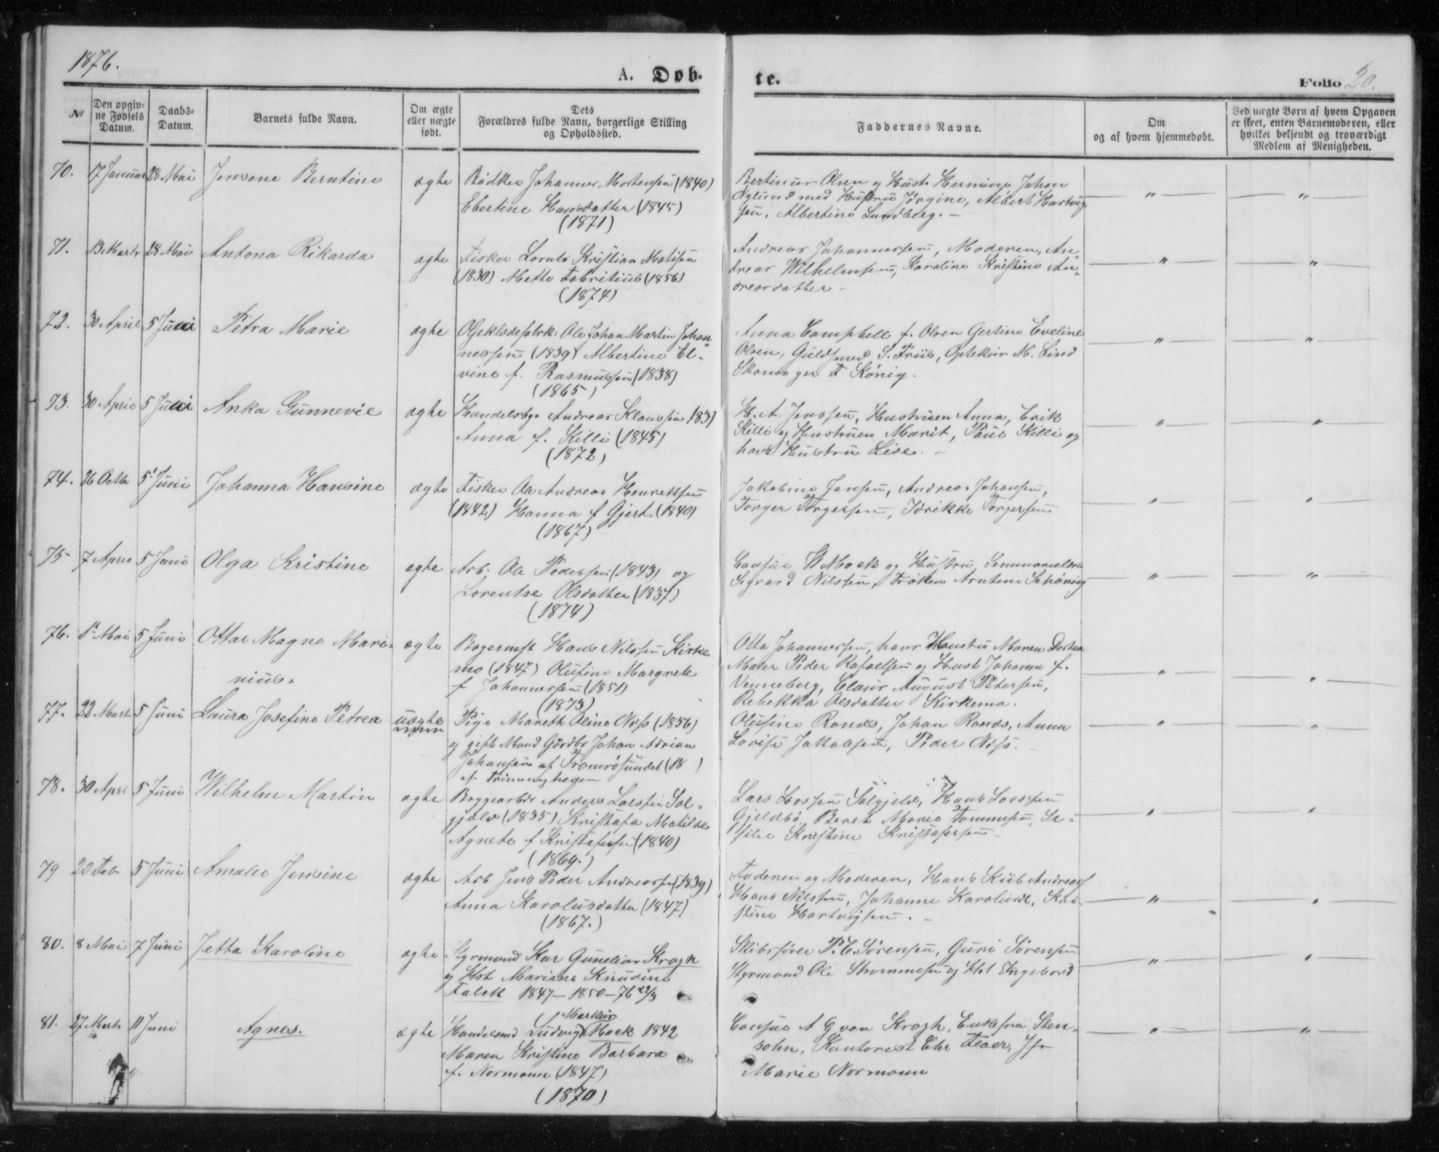 1876.
A. Døb-
te.
Folio 20.
№
Den opgiv-
ne Fødsels
Datum.
Daabs-
Datum.
Barnets fulde Navn.
Om ægte
eller uægte
født.
Dets
Forældres fulde Navn, borgerlige Stilling
og Opholdssted.
Faddernes Navne.
Om
og af hvem hjemmedøbt.
Ved uægte Børn af hvem Opgaven
er skeet, enten Barnemoderen, eller
hvilket bekjendt og troværdigt
Medlem af Menigheden.
70. 17 Januar 28 Mai Jensene Berntine ægte Bødker Johannes Mortensen (1840)
Ebertine Hansdatter (1845)
(1871)
Olsen og Hust Johan
med Hustru Jørgine, Albert Hartvig
sen, Albertine Lundberg.
71. 13 Marts 28 Mai Antona Rikarda ægte Fisker Kristian Matisen
(1830) Mette Fabritius (1856)
(1874)
Andreas Johannessen, Moderen, An-
dreas Wilhelmsen, Karoline Kristine An-
dreasdatter
72. 30 April 5 Juni Petra Marie ægte Ole Johan Martin Johan-
nessen (1839) Albertine El-
vine f. Rasmussen (1838)
(1865)
Anna Campbell f. Olsen Gertine Eveline
Olsen, Guldsmed S. Friis, M. Lind
König.
73. 30 April 5 Juni Anka Gunnevie ægte Handelsbg. Andreas Klaussen 183
Anna f. Killi (1845)
(1872)
H. A. Jenssen, Hustruen Anna, Erik
Killi og Hustruen Marit, Killi og
hans Hustru Lise.
74. 26 5 Juni Johanna Hansine ægte Fisker Ole Andreas Henriksen
(1842) Hanna f. Gjert (1840)
(1867)
Jakobine Jensen, Andreas Johansen,
Torger Torgersen, Torgersen
75 7 April 5 Juni Olga Kristine ægte Arb. Ole Pedersen (1843) og
Lorentse Olsdatter (1837)
(1874)
Consul Mack og Hustru,
Sigvard Nilssen, Frøken Arntine
76. 1ste Mai 5 Juni Ottar Magne Mari- ægte Bagermst Hans Nilssen Kirke
nius. mo (1847) Olufine Margrete
f Johannessen (1851)
(1873)
Otto Johannessen, hans Hustru Maren
Peder Rafaelsen og Hust Johanna f.
Venneberg, August Petersen,
Rebekka Olsdatter Kirkemo.
77. 22 Marts 5 Juni Laura Josefine Petrea uægte Pige Olina Noss (1856)
og gift Mand Gårdbr Johan Adrian
Johansen af Tromsøsundet (18 )
Olufine Johan Anna
Lovise Jakobsen, Peder Noss.
78. 30 April 5 Juni Wilhelm Martin ægte Anders Larssen Sol-
gjeld (1835) Kristafa Matilde
Agnete f Kristafersen (1840)
(1869.)
Lars Larssen Solgjeld, Hans Larssen
Beret Marie Tommesen, Se-
silie Kristine Kristafersen.
79 20 Feb. 5 Juni Amalie Jensine ægte Arb Jens Peder Andreassen (1839)
Anna Karolusdatter (1847)
(1867.)
Faderen og Moderen, Hans Andreas
Hans Nilssen, Johanne Karolusd, Kri-
stine Hartvigsen.
80. 8 Mai 7 Juni Jetta Karoline ægte Styrmand Krogh
og Hst Mariane Knudine
Falck 1847 - 1850 - 76 22/3
Skibsfører P. C. Sørensen, Guri Sørensen
Styrmand Ole Strømmesen og Hst Ingeborg
81. 27 Marts 11 Juni Agnes. ægte Handelsmd Ludvig Markus Mack 1842
Maren Kristine Barbara
f. Normann (1847)
(1870)
Consul A G von Krogh, Enkefru Sten-
sohn, Kantorist Chr Jfr
Marie Normann